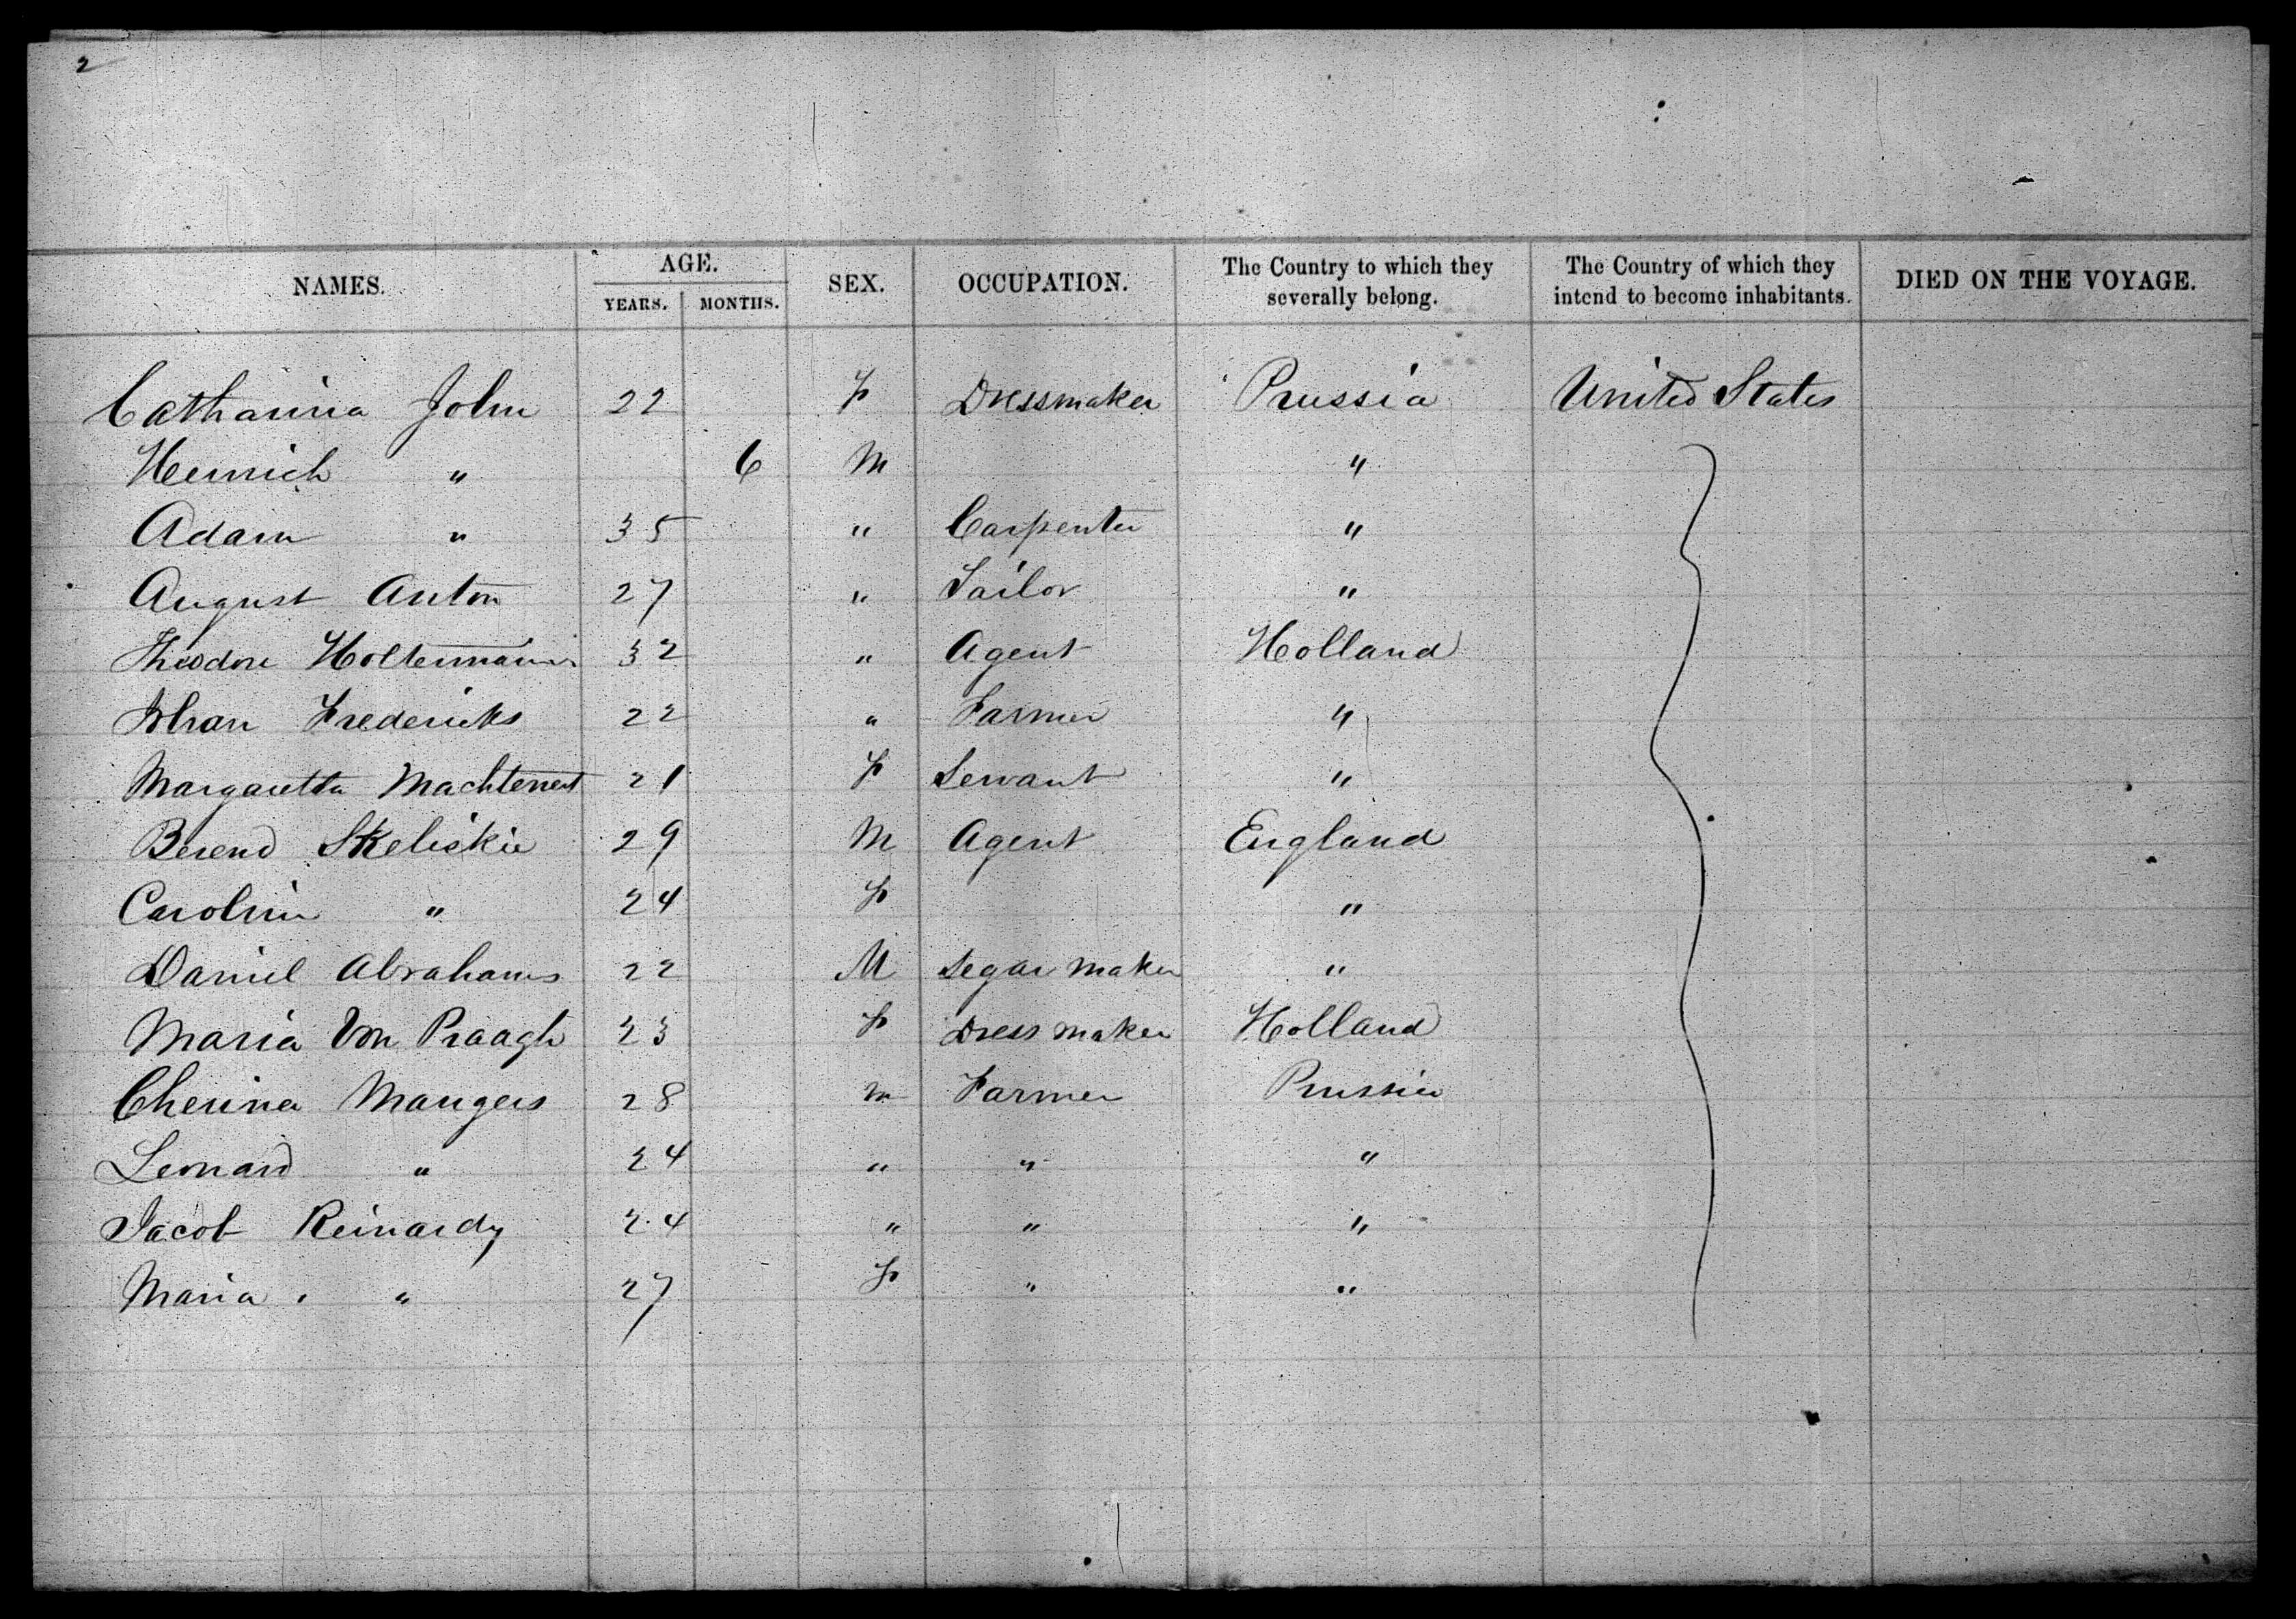 2
NAMES. AGE. YEARS. MONTHS. SEX. OCCUPATION. The Country to which they severally belong. The Country of which they intend to become inhabitants. DIED ON THE VOYAGE.
Catharina John 22 F Dressmaker Prussia United States
Heinrich " 6 M "
Adam " 35 " Carpenter "
August Anton 27 " Tailor "
Theodore Holtermann 32 " Agent Holland
Johan Fredericks 22 " Farmer "
Margaretta 21 F Servant "
Berend Skeliskie 29 M Agent England
Carolin " 24 F "
Daniel Abrahams 22 M Segar maker "
Maria Von Praagh 23 F Dress maker Holland
Mangers 28 m Farmer Prussia
Leonard " 24 " " "
Jacob Reinardy 24 " " "
Maria " 27 F " "